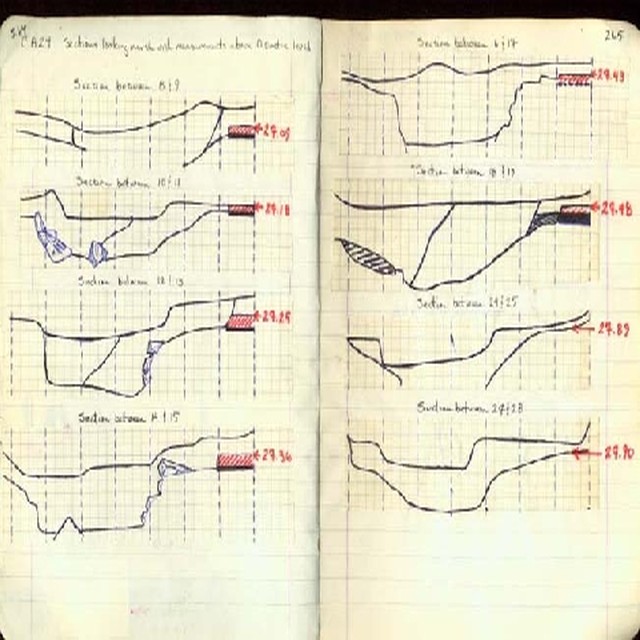 CA24 Sections looking north with measurements above Adriatic level
Section between 8 & 9
27.09
Section between 10 & 11
29.18
Section between 12 & 13
29.29
Section between 14 & 15
29.36
265
Section between 16 & 17
29.49
Section between 18 & 19
29.48
Section between 24 & 25
29.89
Section between 27 & 28
29.90